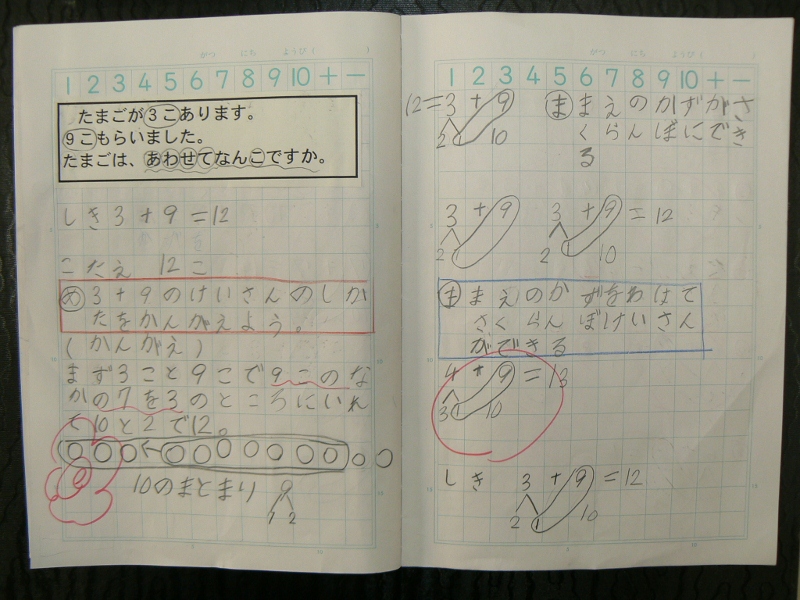 がつ にち ようび( )
1 2 3 4 5 6 7 8 9 10 + −
たまごが3こあります。
9こもらいました。
たまごは、あわせてなんこですか。
しき 3+9=12
こたえ 12こ
め 3+9のけいさんのしか
たをかんがえよう。
(かんがえ)
まず3こと9こで9このな
かの7を3のところにいれ
て10と2で12。
10のまとまり 9
1 2
がつ にち ようび( )
1 2 3 4 5 6 7 8 9 10 + −
12=3+9
2 1 10
ま まえのかずがさ
くらんぼにでき
る
3+9 3+9=12
2 1 2 1 10
ま まえのかずをわけて
さくらんぼけいさん
ができる
4+9=13
3 1 10
しき 3+9=12
2 1 10